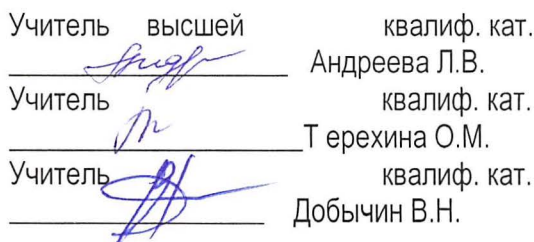 Учитель высшей квалиф. кат.
Андреева Л.В.
Учитель квалиф. кат.
Т ерехина О.М.
Учитель квалиф. кат.
Добычин В.Н.